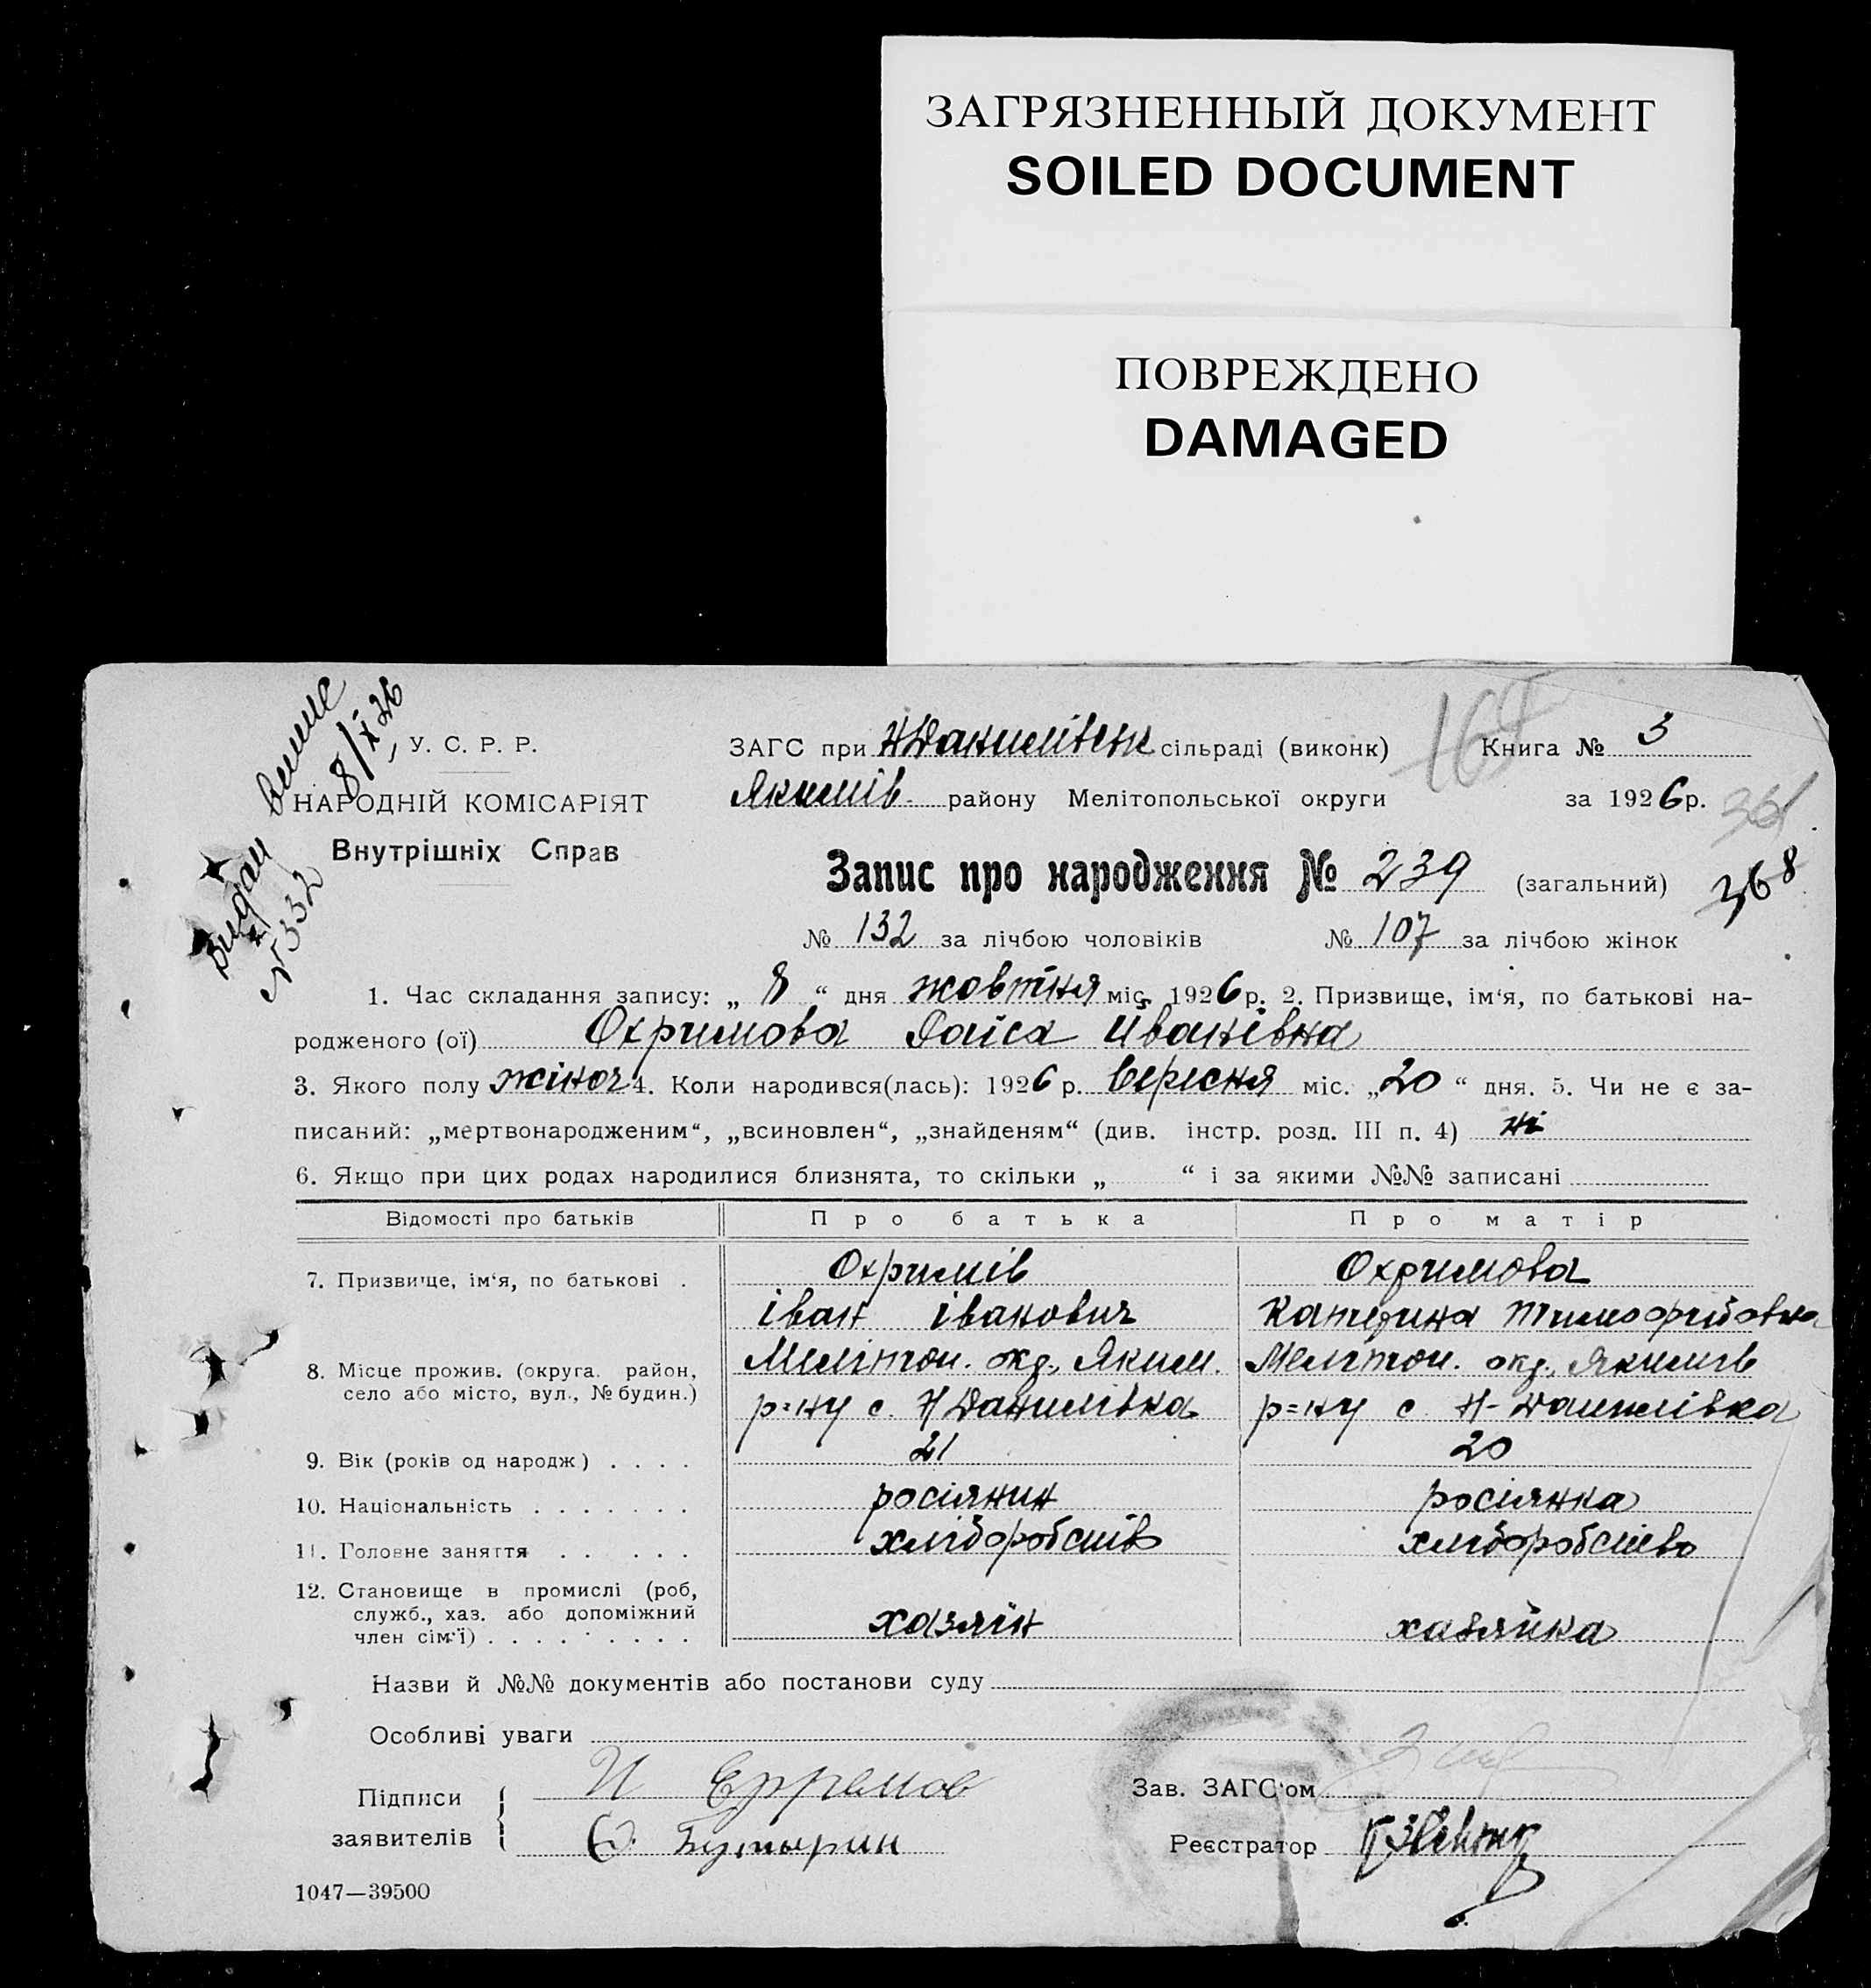 ЗАГРЯЗНЕННЫЙ ДОКУМЕНТ
SOILED DOCUMENT
ПОВРЕЖДЕНО
DAMAGED
Видан виписс 8/X 26
№ 332
У. С. Р. Р.
НАРОДНІЙ КОМІСАРІЯТ
Внутрішніх Справ
ЗАГС при НДанилівськ сільраді (виконк) Книга № 3
Якимів. району Мелітопольської округи за 1926 р.
164
361
Запис про народження № 239 (загальний) 368
№ 132 за лічбою чоловіків № 107 за лічбою жінок
1. Час складання запису: „ 8 “ дня жовтня міс. 1926 р. 2. Призвище, ім‘я, по батькові на-
родженого (ої) Охримова Раїса Іванівна
3. Якого полу жіноч 4. Коли народився(лась): 1926 р. вересня міс. „20“ дня. 5. Чи не є за-
писаний: „мертвонародженим“, „всиновлен“, „знайденям“ (див. інстр. розд. III п. 4) ні
6. Якщо при цих родах народилися близнята, то скільки „ “ і за якими №№ записані
Відомості про батьків Про батька Про матір
7. Призвище, ім‘я, по батькові . Охримів Охримова
Іван Іванович Катерина Тимофійовна
8. Місце прожив. (округа, район, Меліточ. окр., Яким. Меліточ. окр., Якимів
село або місто, вул., № будин.) р=ну с. НДанилівка р=ну с. Н-Данилівка
9. Вік (років од народж) . . . . 21 20
10. Національність . . . . . . . росіянин росіянка
11. Головне заняття . . . . . хліборобств хліборобство
12. Становище в промислі (роб,
служб., хаз. або допоміжний хазяїн хазяйка
член сім‘ї) . . . . . . . . .
Назви й №№ документів або постанови суду
Особливі уваги
Підписи И Ефремов Зав. ЗАГС‘ом
заявителів Бутырин Реєстратор
1047—39500